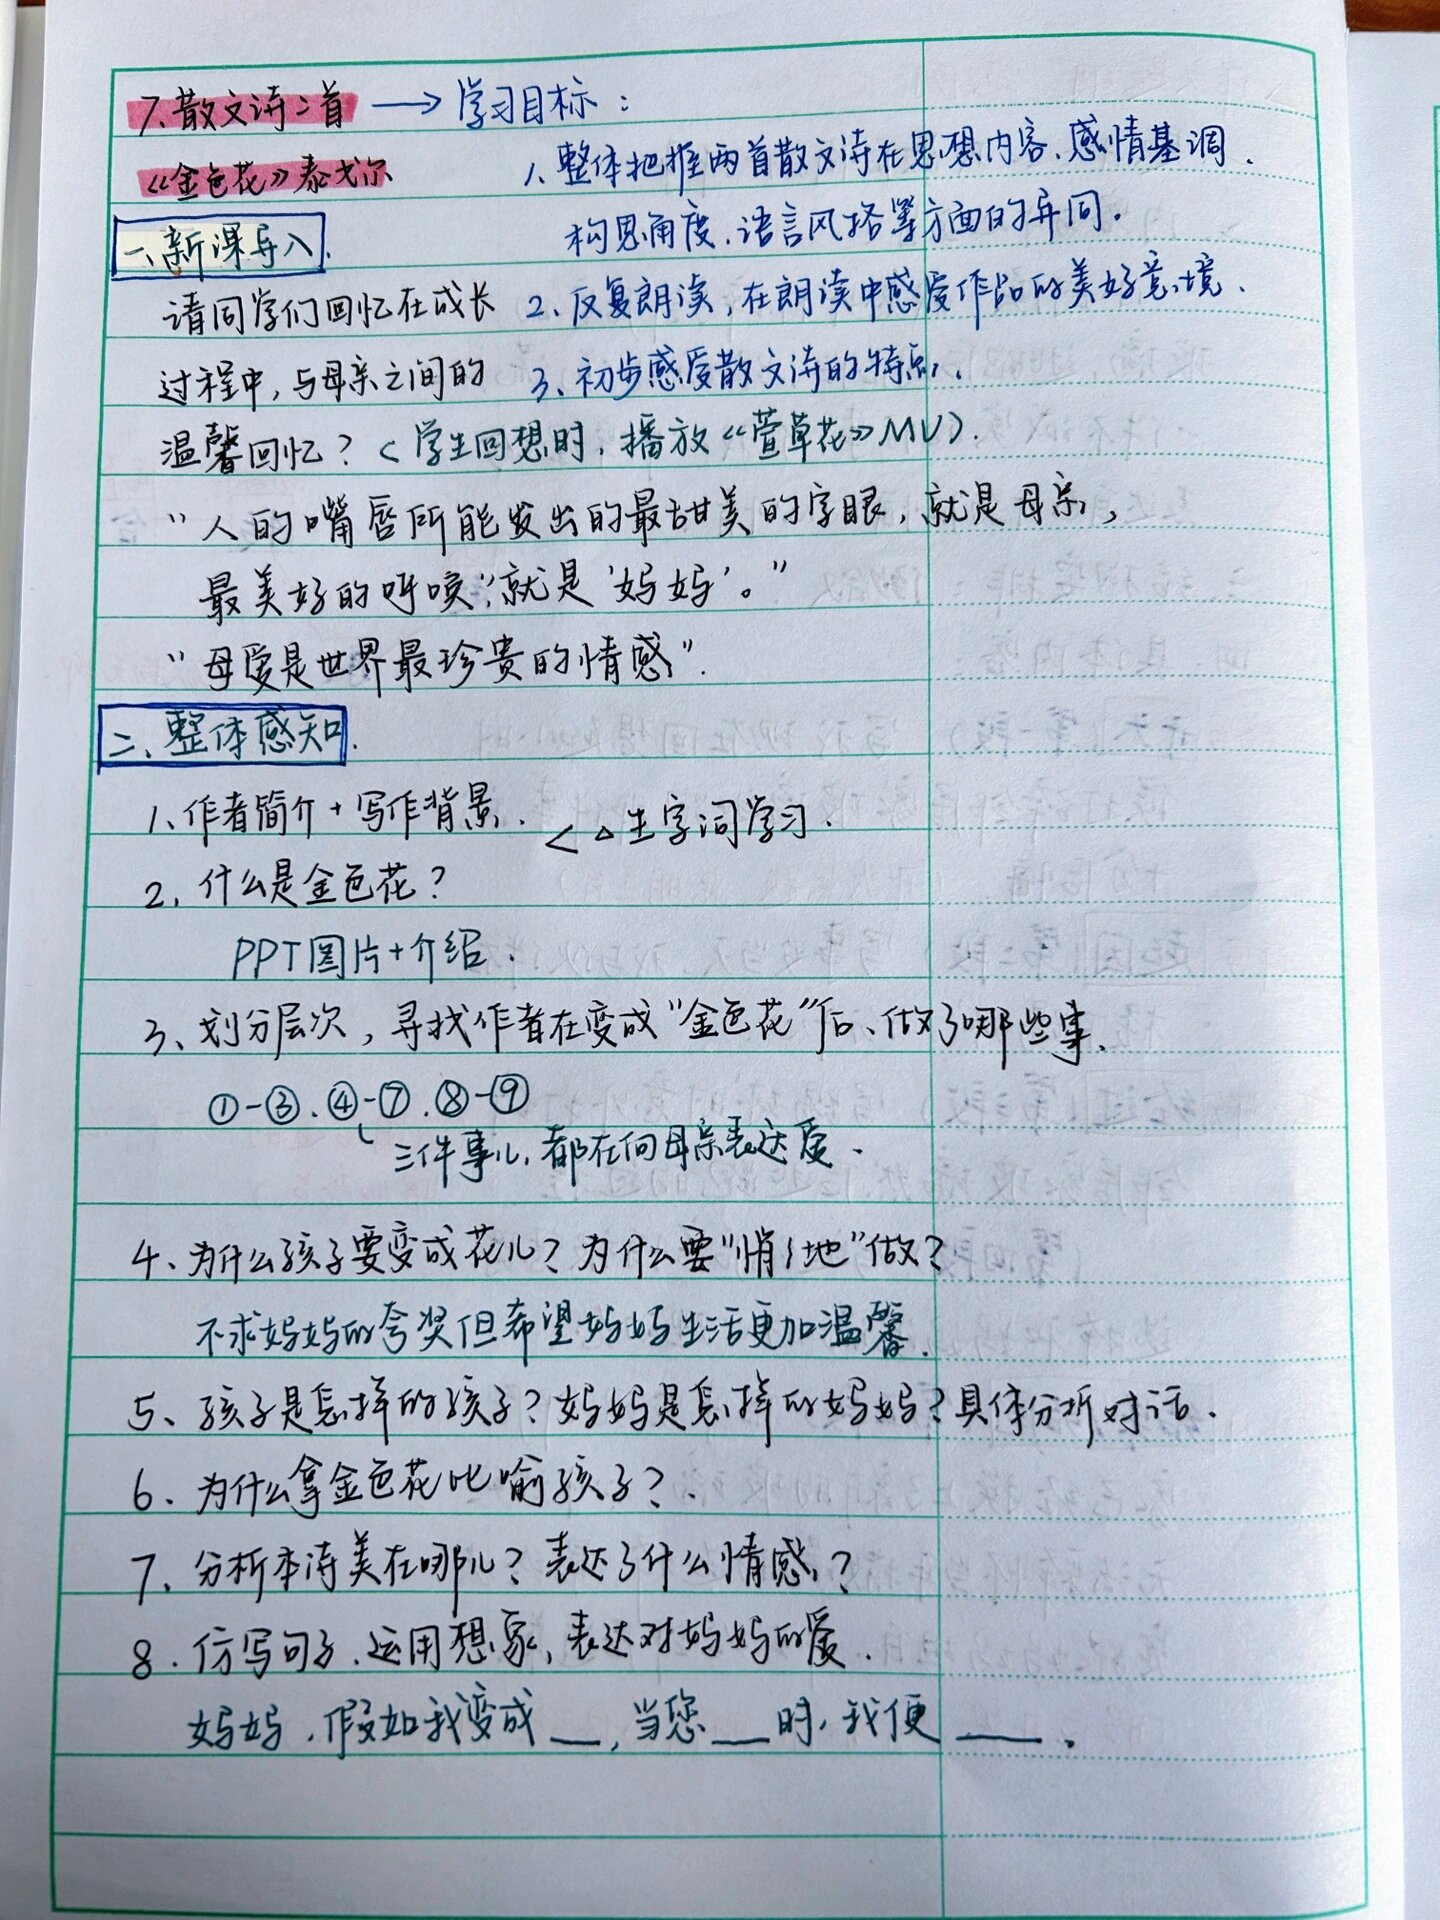 7.散文诗二首 → 学习目标：
《金色花》泰戈尔
1、整体把握两首散文诗在思想内容、感情基调、
构思角度、语言风格等方面的异同。
2、反复朗读，在朗读中感受作品的美好意境。
3、初步感受散文诗的特点。
一、新课导入.
请同学们回忆在成长
过程中，与母亲之间的
温馨回忆？<学生回想时，播放《萱草花》MV>.
“人的嘴唇所能发出的最甜美的字眼，就是母亲，
最美好的呼唤，就是‘妈妈’。”
“母爱是世界最珍贵的情感”.
二、整体感知.
1、作者简介+写作背景. <△生字词学习.
2、什么是金色花？
PPT图片+介绍.
3、划分层次，寻找作者在变成“金色花”后、做了哪些事.
①-③.④-⑦.⑧-⑨
三件事儿，都在向母亲表达爱.
4、为什么孩子要变成花儿？为什么要“悄悄地”做？
不求妈妈的夸奖但希望妈妈生活更加温馨.
5、孩子是怎样的孩子？妈妈是怎样的妈妈？具体分析对话.
6、为什么拿金色花比喻孩子？.
7、分析本诗美在哪儿？表达了什么情感？
8.仿写句子.运用想象，表达对妈妈的爱.
妈妈.假如我变成__，当您__时，我便___.